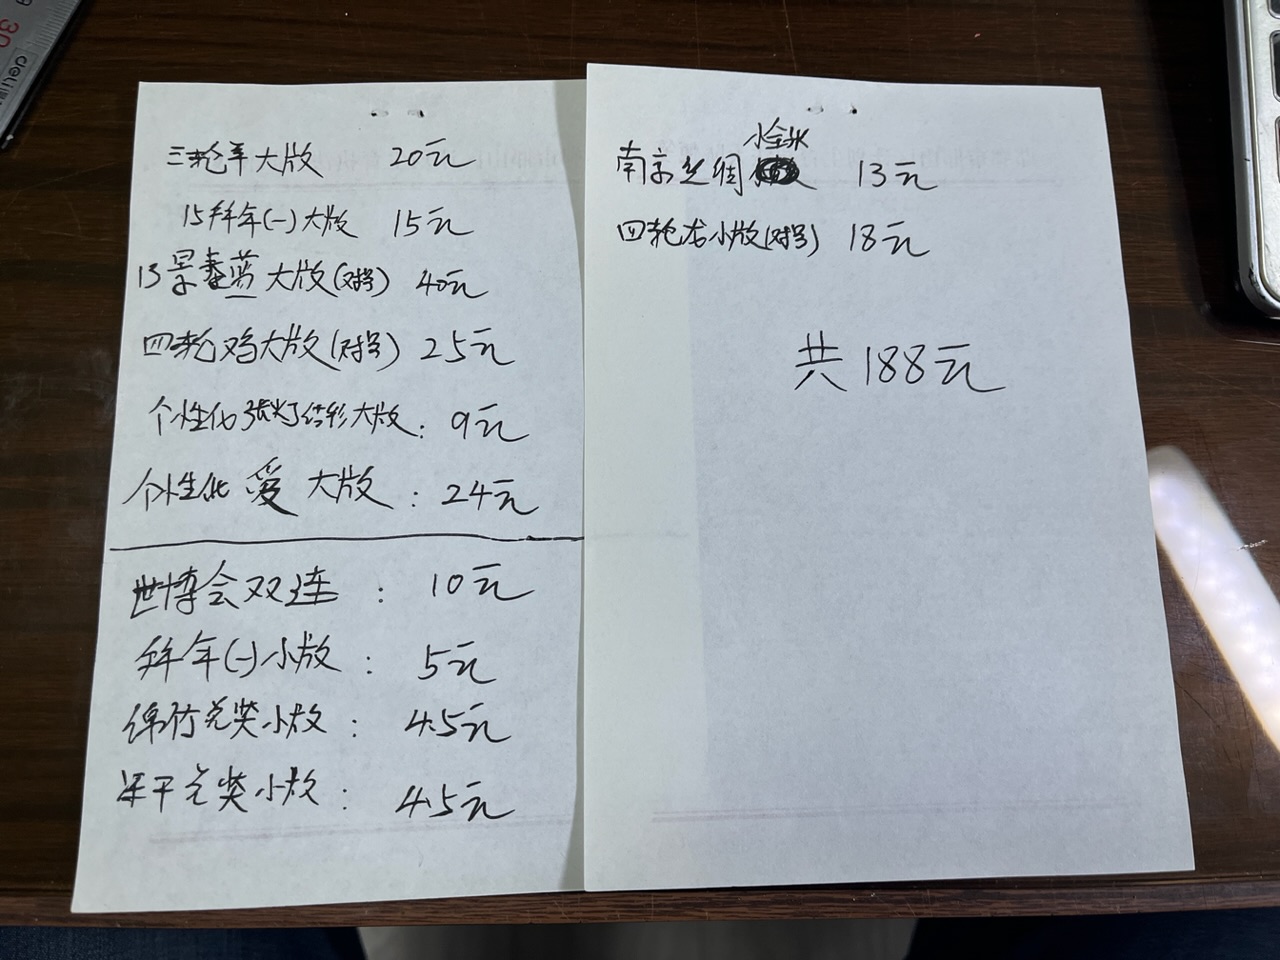 三轮羊大版 20元
15拜年(一)大版 15元
13景泰蓝大版(对号) 40元
四轮鸡大版(对号) 25元
个性化张灯结彩大版: 9元
个性化 爱 大版: 24元
世博会双连: 10元
拜年(一)小版: 5元
绵竹兑奖小版: 4.5元
梁平兑奖小版: 4.5元
小全张
南京丝绸 13元
四轮龙小版(对号) 18元
共188元
30
deli